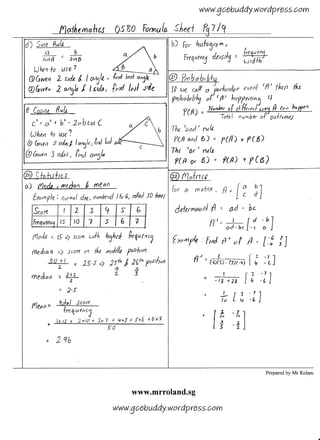 www.gcebuddy.wordpress.com
Mathematics 0580 Formula Sheet Pg 7/9
d) Sine Rule
a/sinA = b/sinB
When to use?
① Given 2 side & 1 angle, find last angle
② Given 2 angle & 1 side, find last side
e) Cosine Rule
c² = a² + b² - 2ab cos C
When to use?
① Given 2 sides & 1 angle, find last side
② Given 3 sides, find angle
b) For histogram,
Frequency density = frequency / width
㉑ Probability
If we call a particular event 'A' then the
probability of 'A' happening is
P(A) = Number of different ways A can happen / Total number of outcomes
The 'and' rule
P(A and B) = P(A) × P(B)
The 'or' rule
P(A or B) = P(A) + P(B)
⑳ Statistics
a) Mode, median & mean
Example: normal dice, numbered 1 to 6, rolled 50 times
Score 1 2 3 4 5 6
frequency 15 10 7 5 6 7
Mode = 15 => score with highest frequency
median => score in the middle position
50+1 / 2 = 25.5 => 25th & 26th position
2 3
median = 2+3 / 2
= 2.5
Mean = total score / frequency
= 1×15 + 2×10 + 3×7 + 4×5 + 5×6 + 6×7 / 50
= 2.96
㉒ Matrices
For a matrix, A = [a b
c d]
determinant A = ad - bc
A⁻¹ = 1/(ad-bc) [d -b
-c a]
Example Find A⁻¹ of A = [-6 7
-4 3]
A⁻¹ = 1/((-6)(3) - (7)(-4)) [3 -7
4 -6]
= 1/(-18 + 28) [3 -7
4 -6]
= 1/10 [3 -7
4 -6]
Prepared by Mr Rolans
www.mrroland.sg
www.gcebuddy.wordpress.com